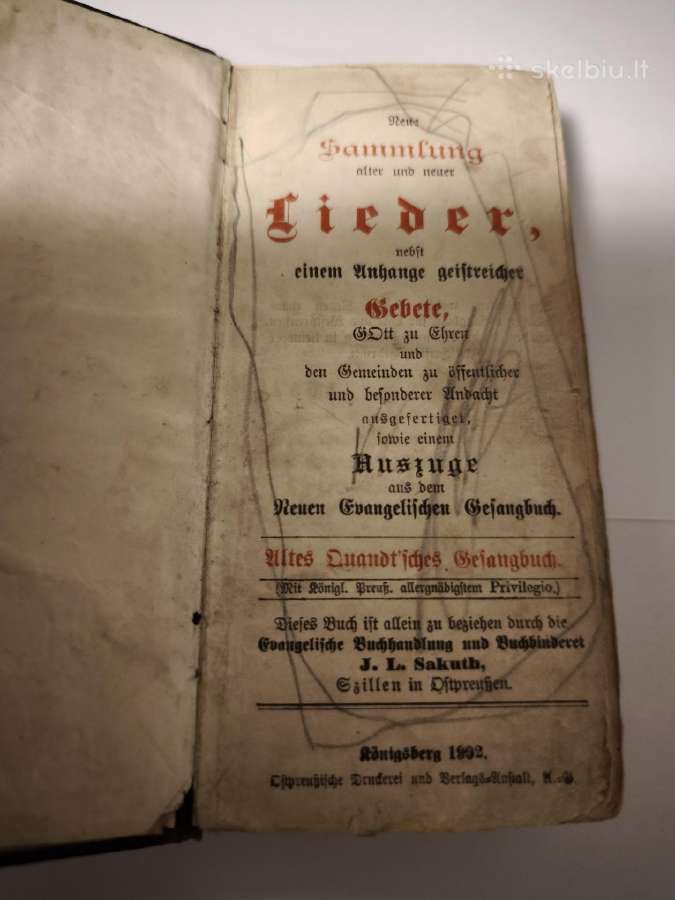 skelbiu.lt
Neue
Sammlung
alter und neuer
Lieder,
nebst
einem Anhange geistreicher
Gebete,
GOtt zu Ehren
und
den Gemeinden zu öffentlicher
und besonderer Andacht
ausgefertiget,
sowie einem
Auszuge
aus dem
Neuen Evangelischen Gesangbuch.
Altes Quandt'sches Gesangbuch.
(Mit Königl. Preuß. allergnädigstem Privilegio.)
Dieses Buch ist allein zu beziehen durch die
Evangelische Buchhandlung und Buchbinderei
J. L. Sakuth,
Szillen in Ostpreußen.
Königsberg 1902.
Ostpreußische Druckerei und Verlags-Anstalt, A.-G.